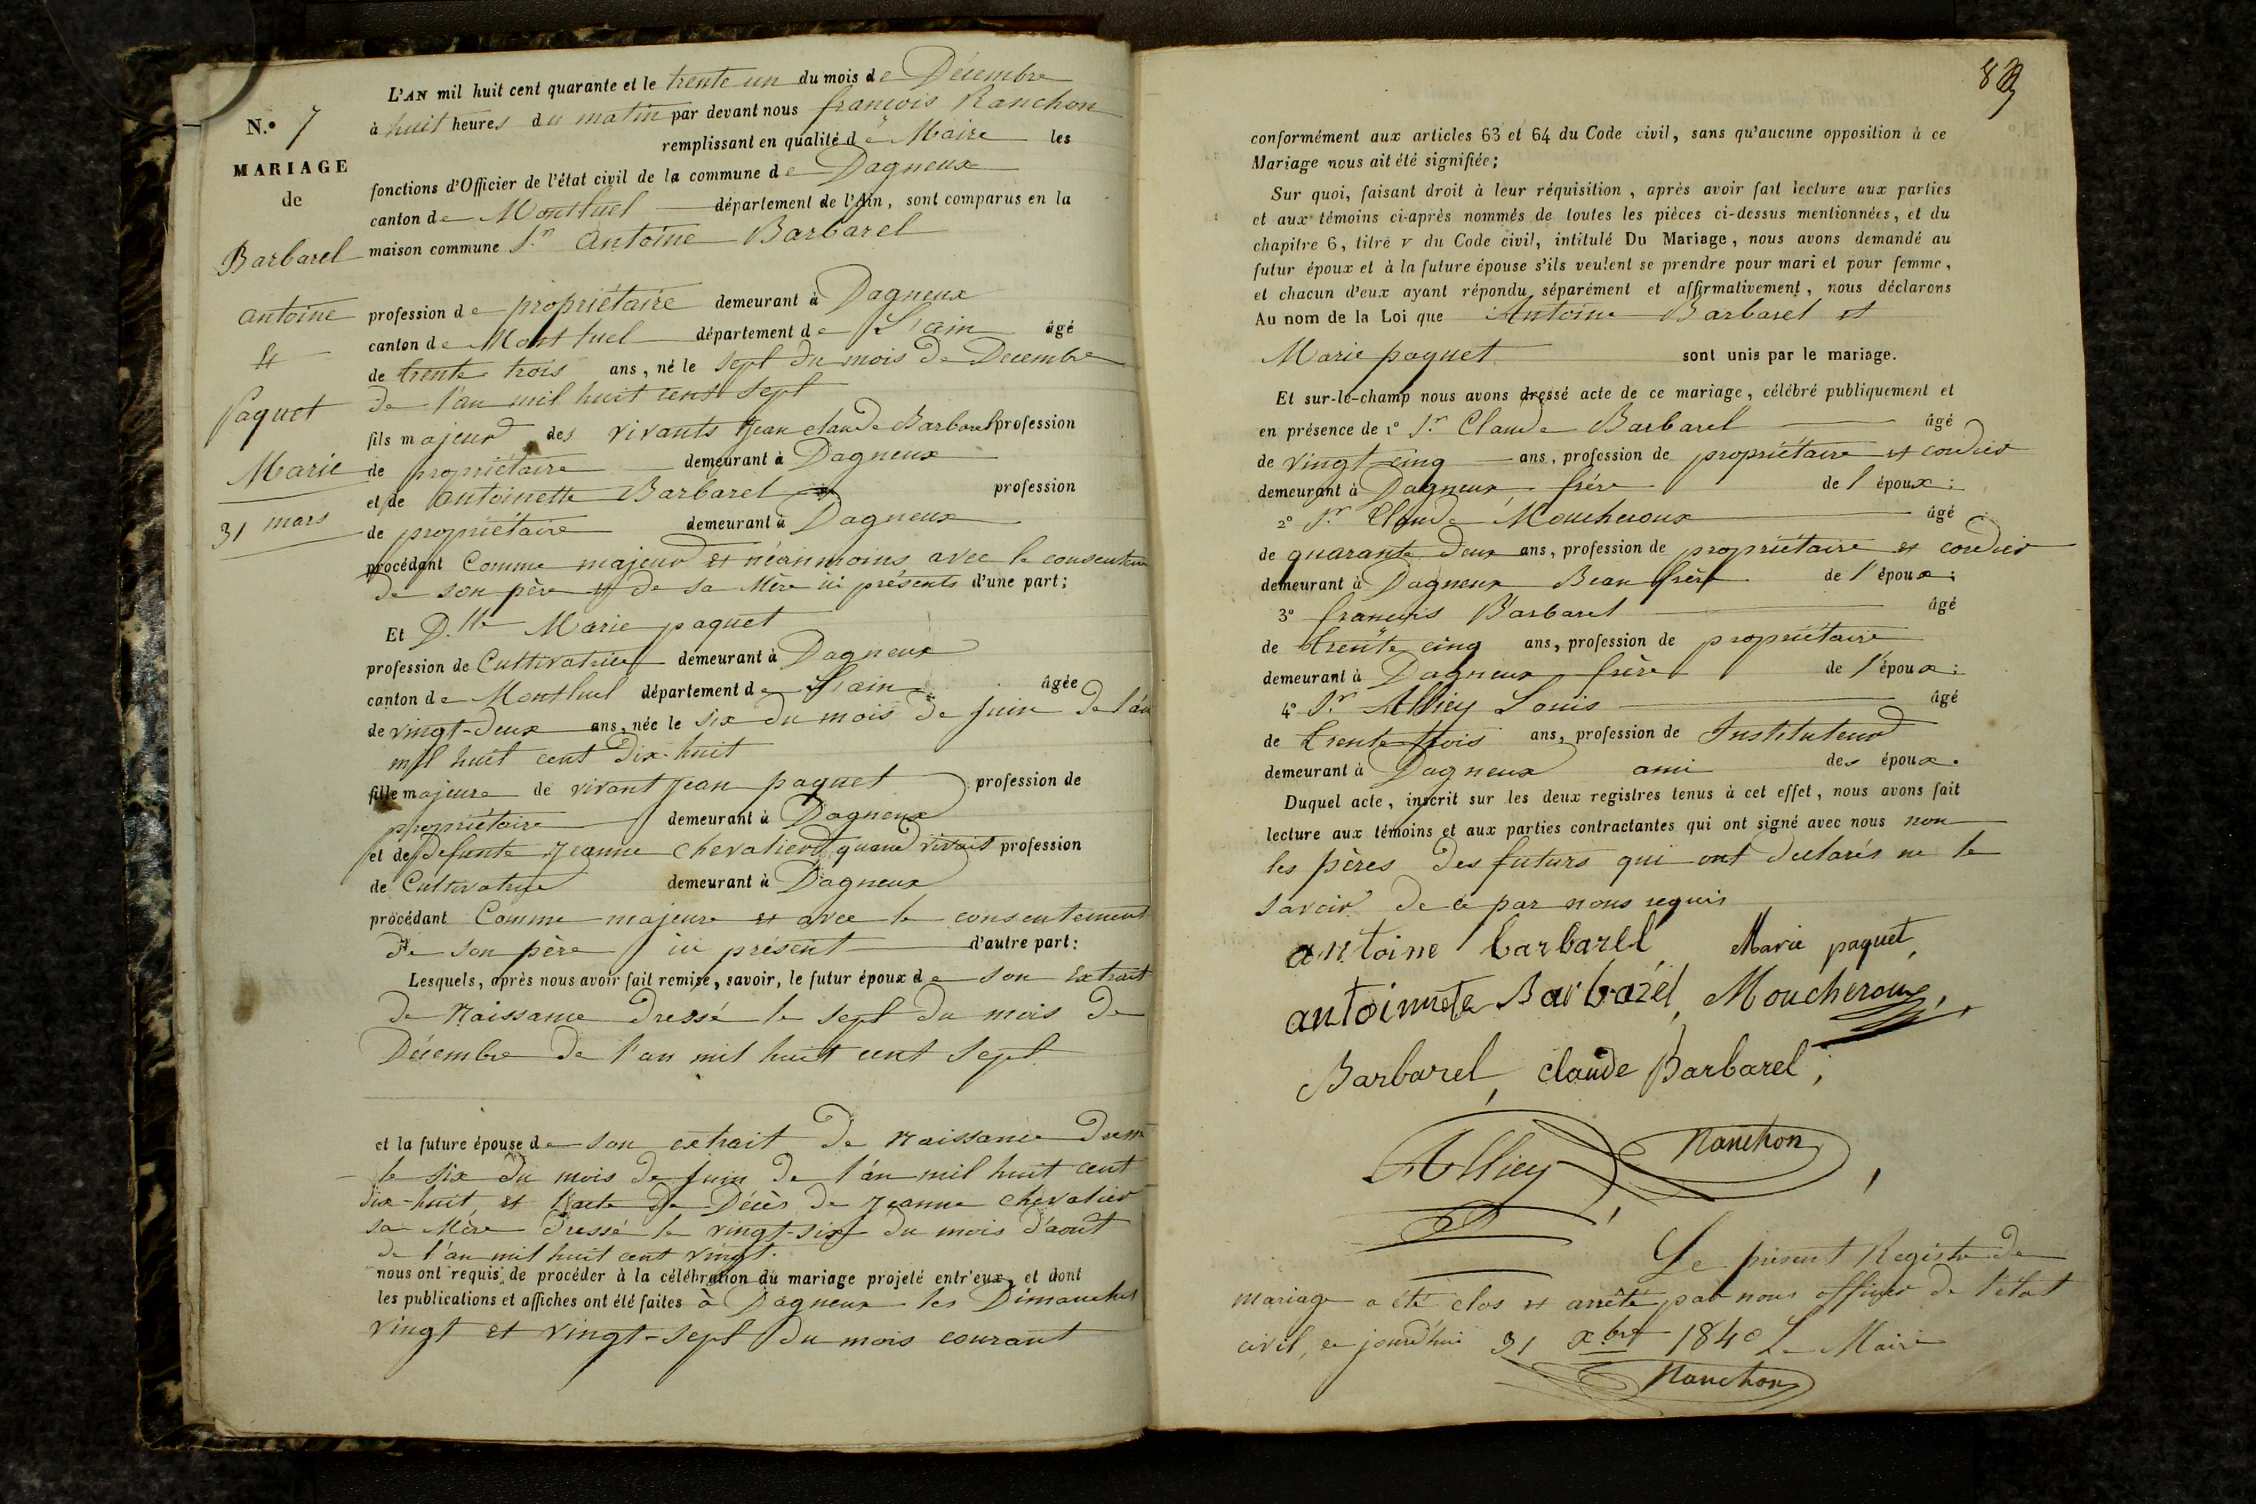 N.o 7
MARIAGE
de
Barbarel
antoine
et
Paquet
Marie
31 mars
L'AN mil huit cent quarante et le trente un du mois de Décembre
à huit heures du matin par devant nous françois Nanchon
remplissant en qualité de Maire les
fonctions d'Officier de l'état civil de la commune de Dagneux
canton de Montluel département de l'Ain, sont comparus en la
maison commune S.r Antoine Barbarel
profession de propriétaire demeurant à Dagneux
canton de Montluel département de L'ain âgé
de trente trois ans, né le sept du mois de Décembre
de l'an mil huit cent sept
fils majeur des vivants Jean claude Barbarel profession
de propriétaire demeurant à Dagneux
et de antoinette Barbarel profession
de propriétaire demeurant à Dagneux
procédant Comme majeur et néanmoins avec le consentem
de son père et de sa Mère ici présents d'une part;
Et D.lle Marie paquet
profession de Cultivatrice demeurant à Dagneux
canton de Montluel département de L'ain âgée
de vingt-deux ans, née le six du mois de Juin de l'an
mil huit cent dix-huit
fille majeure de vivant Jean paquet profession de
propriétaire demeurant à Dagneux
et de défunte Jeanne chevalier quand vivait profession
de Cultivatrice demeurant à Dagneux
procédant Comme majeure et avec le consentement
de son père ici présent d'autre part:
Lesquels, après nous avoir fait remise, savoir, le futur époux de son Extrait
de Naissance dressé le sept du mois de
Décembre de l'an mil huit cent sept
et la future épouse de son extrait de Naissance dressé
le six du mois de Juin de l'an mil huit cent
dix-huit, et l'acte de Décès de Jeanne chevalier
sa Mère dressé le vingt-six du mois d'août
de l'an mil huit cent vingt.
nous ont requis de procéder à la célébration du mariage projeté entr'eux, et dont
les publications et affiches ont été faites à Dagneux les Dimanches
vingt et vingt-sept du mois courant
conformément aux articles 63 et 64 du Code civil, sans qu'aucune opposition à ce
Mariage nous ait été signifiée;
Sur quoi, faisant droit à leur réquisition, après avoir fait lecture aux parties
et aux témoins ci-après nommés de toutes les pièces ci-dessus mentionnées, et du
chapitre 6, titre v du Code civil, intitulé Du Mariage, nous avons demandé au
futur époux et à la future épouse s'ils veulent se prendre pour mari et pour femme,
et chacun d'eux ayant répondu séparément et affirmativement, nous déclarons
Au nom de la Loi que Antoine Barbarel et
Marie paquet sont unis par le mariage.
Et sur-le-champ nous avons dressé acte de ce mariage, célébré publiquement et
en présence de 1o S.r Claude Barbarel âgé
de vingt cinq ans, profession de propriétaire et cordier
demeurant à Dagneux frère de l'époux;
2o S.r Claude Moucheroux âgé
de quarante deux ans, profession de propriétaire et cordier
demeurant à Dagneux Beau frère de l'époux;
3o françois Barbarel âgé
de trente cinq ans, profession de propriétaire
demeurant à Dagneux frère de l'époux;
4o S.r Alliey Louis âgé
de trente trois ans, profession de Instituteur
demeurant à Dagneux ami des époux.
Duquel acte, inscrit sur les deux registres tenus à cet effet, nous avons fait
lecture aux témoins et aux parties contractantes qui ont signé avec nous non
les pères des futurs qui ont déclarés ne le
savoir de ce par nous requis
antoine barbarel, Marie paquet,
antoinnete Barbarel, Moucheroux,
Barbarel, claude Barbarel,
Alliey, Nanchon,
Le présent Registre de
mariage a été clos et arrêté par nous officier de l'état
civil, ce jourd'hui 31 X.bre 1840 Le Maire
Nanchon